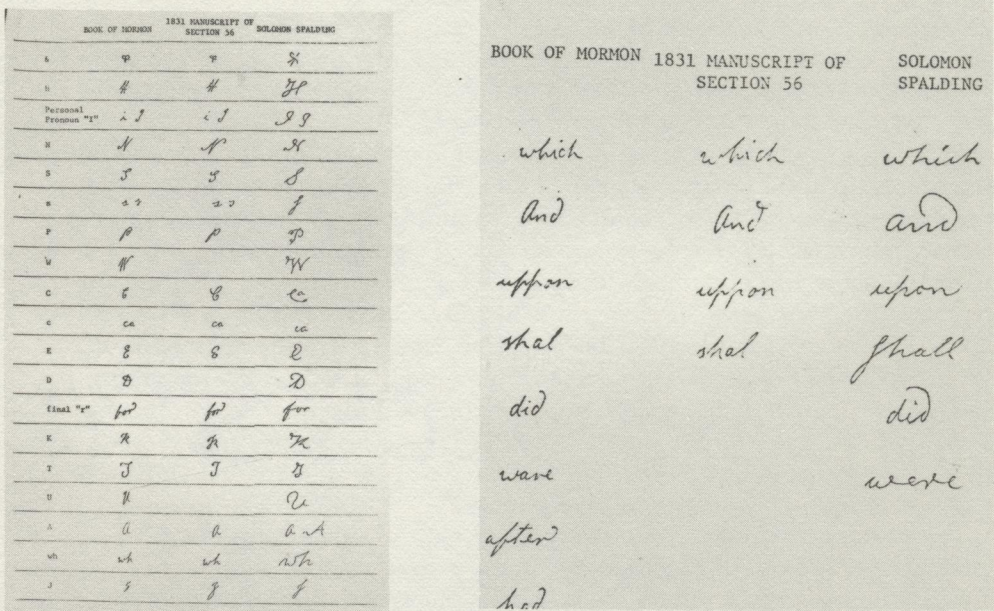 BOOK OF MORMON 1831 MANUSCRIPT OF SECTION 56 SOLOMON SPALDING
&
H
Personal Pronoun "I" i I i I I I
N N N N
S S S S
P P P P
W W W
C C C Ca
c ca ca ca
E E E E
D D D
final "r" for for for
K K K K
T T T T
U U U
A a a a A
wh wh wh wh
J
BOOK OF MORMON 1831 MANUSCRIPT OF SECTION 56 SOLOMON SPALDING
which which which
And And and
uppon uppon upon
shal shal shall
did did
ware were
after
had